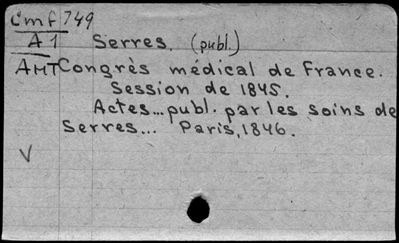 Cmf 749
A1 Serres. (publ.)
AMT Congrès médical de France.
Session de 1845.
Actes... publ. par les soins de
Serres... Paris, 1846.
V